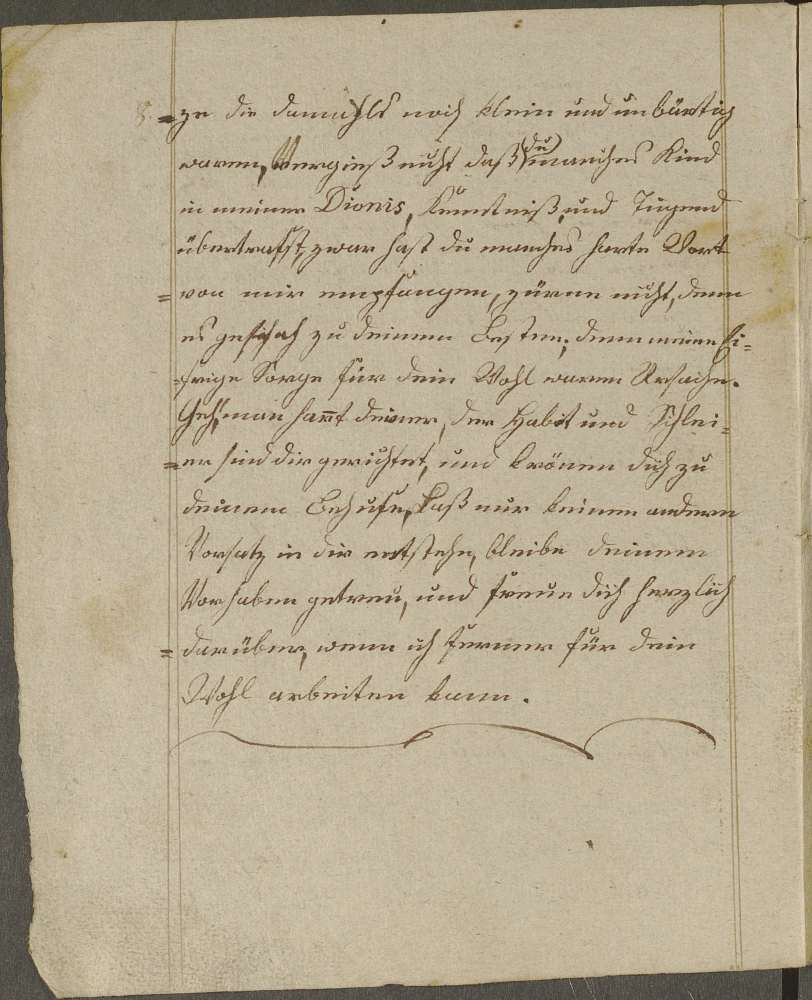 =ge die damahls noch klein und unbärtig
waren, Vergieß nicht daß du manches Kind
in meiner Dionis, Kenntniß, und Tugend
übertrafst, zwar hast du manches harte Wort
=von mir empfangen, zürne nicht, denn
es geschah zu deinem Besten, denn meine Ei=
=frige Sorge für dein Wohl waren Ursache.
Geh, man harrt deiner, der Habit und Schlei=
=er sind dir gerichtet, und krönen dich zu
deinem Behufe, Laß nur keinen andern
Vorsatz in dir entstehn, bleibe deinem
Vorhaben getreu, und freue dich herzlich
=darüber, wenn ich ferner für dein
Wohl arbeiten kann.